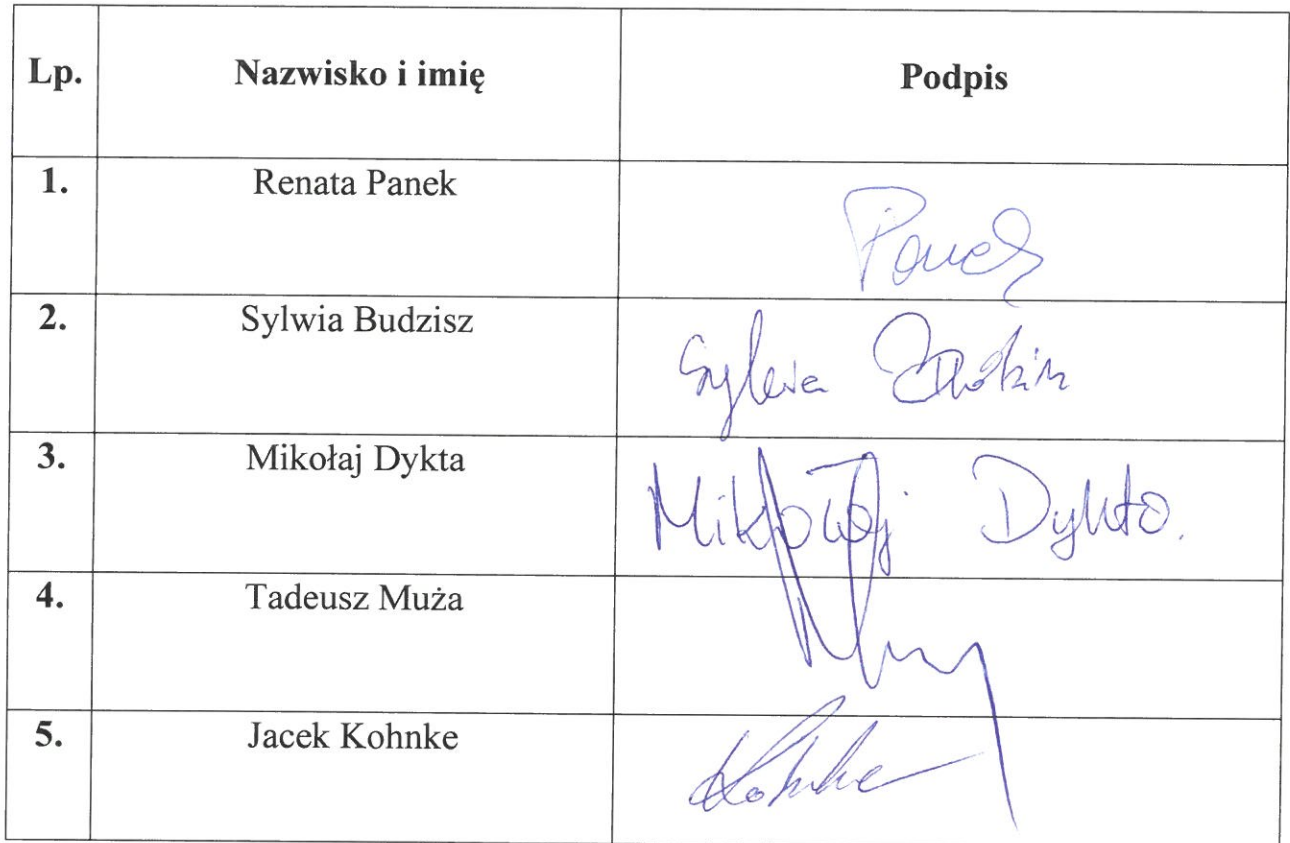 Lp. Nazwisko i imię Podpis
1. Renata Panek Panek
2. Sylwia Budzisz Sylwia
3. Mikołaj Dykta Mikołaj Dykta.
4. Tadeusz Muża
5. Jacek Kohnke Kohnke